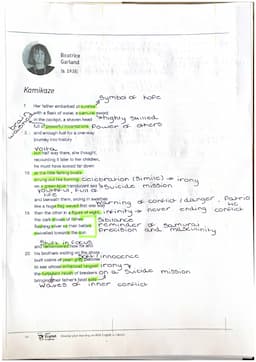 Beatrice
Garland
(b. 1938)
Kamikaze
symbol of hope
Her father embarked at sunrise
with a flask of water, a samurai sword
in the cockpit, a shaven head
highly skilled
full of powerful incantations
power of others
5 and enough fuel for a one-way
journey into history
Volta
but half way there, she thought,
recounting it later to her children,
he must have looked far down
10 at the little fishing boats
strung out like bunting
celebration (simile) → irony
on a green-blue translucent sea
suicide mission
life
and beneath them, arcing in swathes
warning of conflict / danger,
like a huge flag waved first one way
15 then the other in a figure of eight,
infinity → never ending conflict
the dark shoals of fishes
sibilance
flashing silver as their bellies
reminder of samurai
swivelled towards the sun
precision and masculinity
Shift in focus
and remembered how he and
20 his brothers waiting on the shore
built cairns of pearl-grey pebbles
innocence
to see whose withstood longest
irony
the turbulent inrush of breakers
on a suicide mission
bringing their father's boat safe
Waves of inner conflict